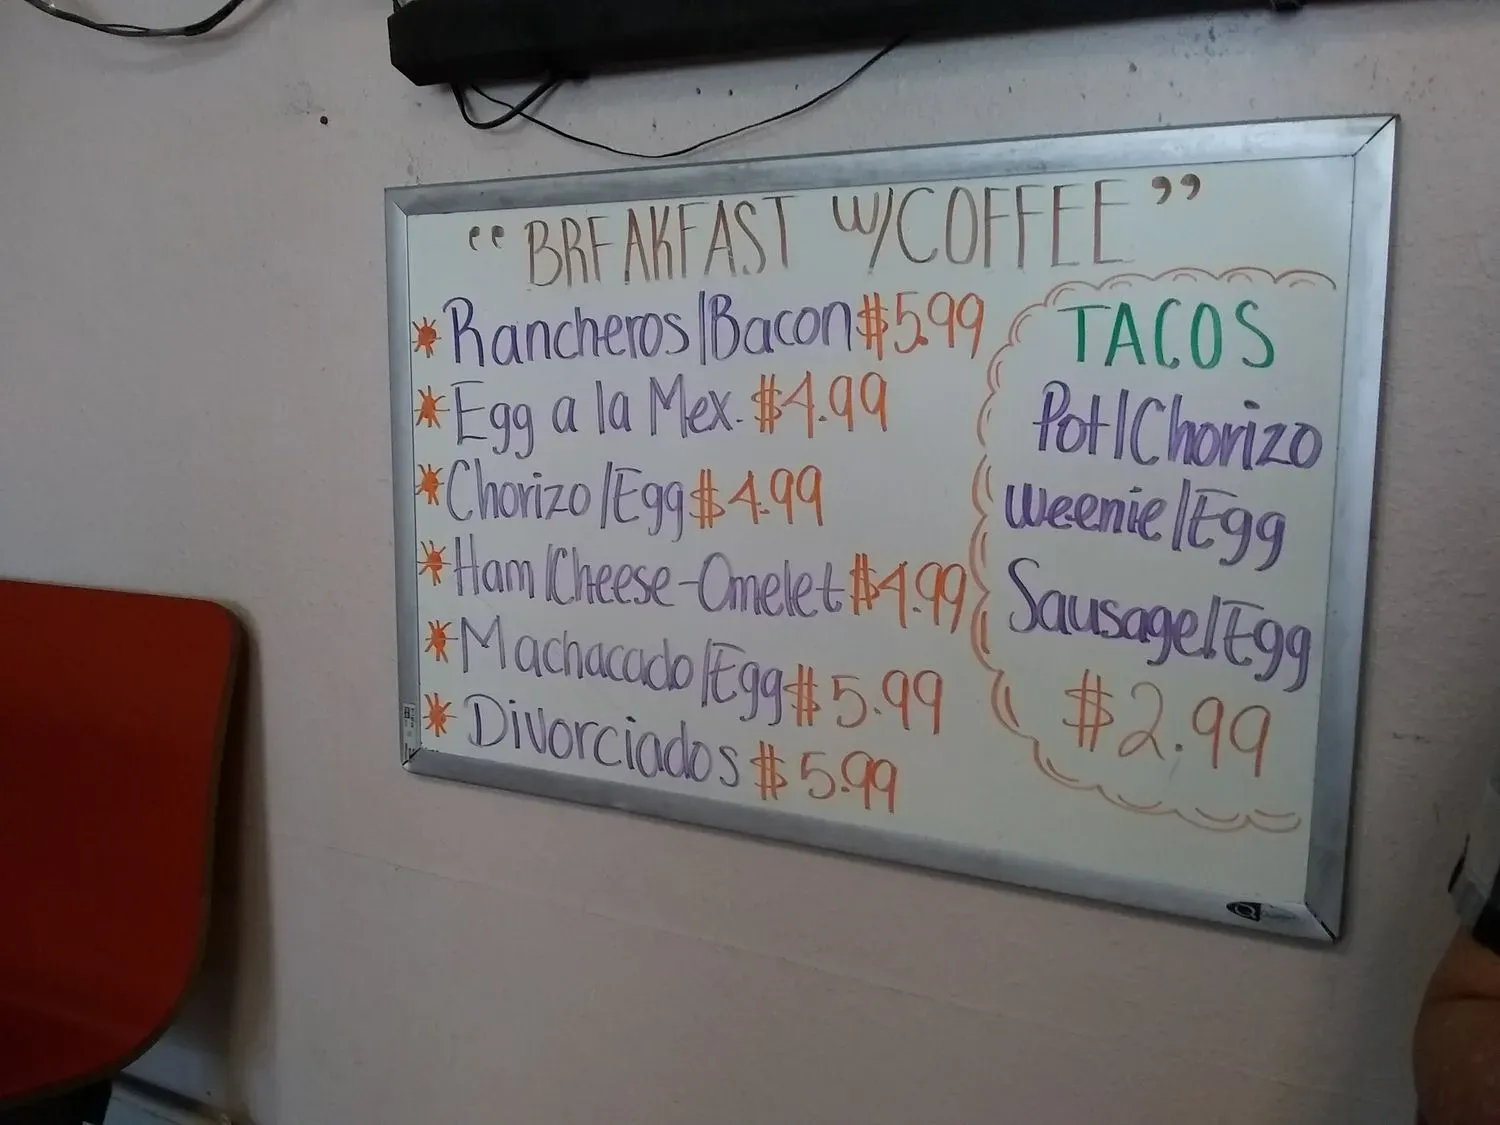 “BREAKFAST W/COFFEE”
Rancheros/Bacon $5.99
Egg a la Mex. $4.99
Chorizo/Egg $4.99
Ham/Cheese-Omelet $4.99
Machacado/Egg $5.99
Divorciados $5.99
TACOS
Pot/Chorizo
Weenie/Egg
Sausage/Egg
$2.99